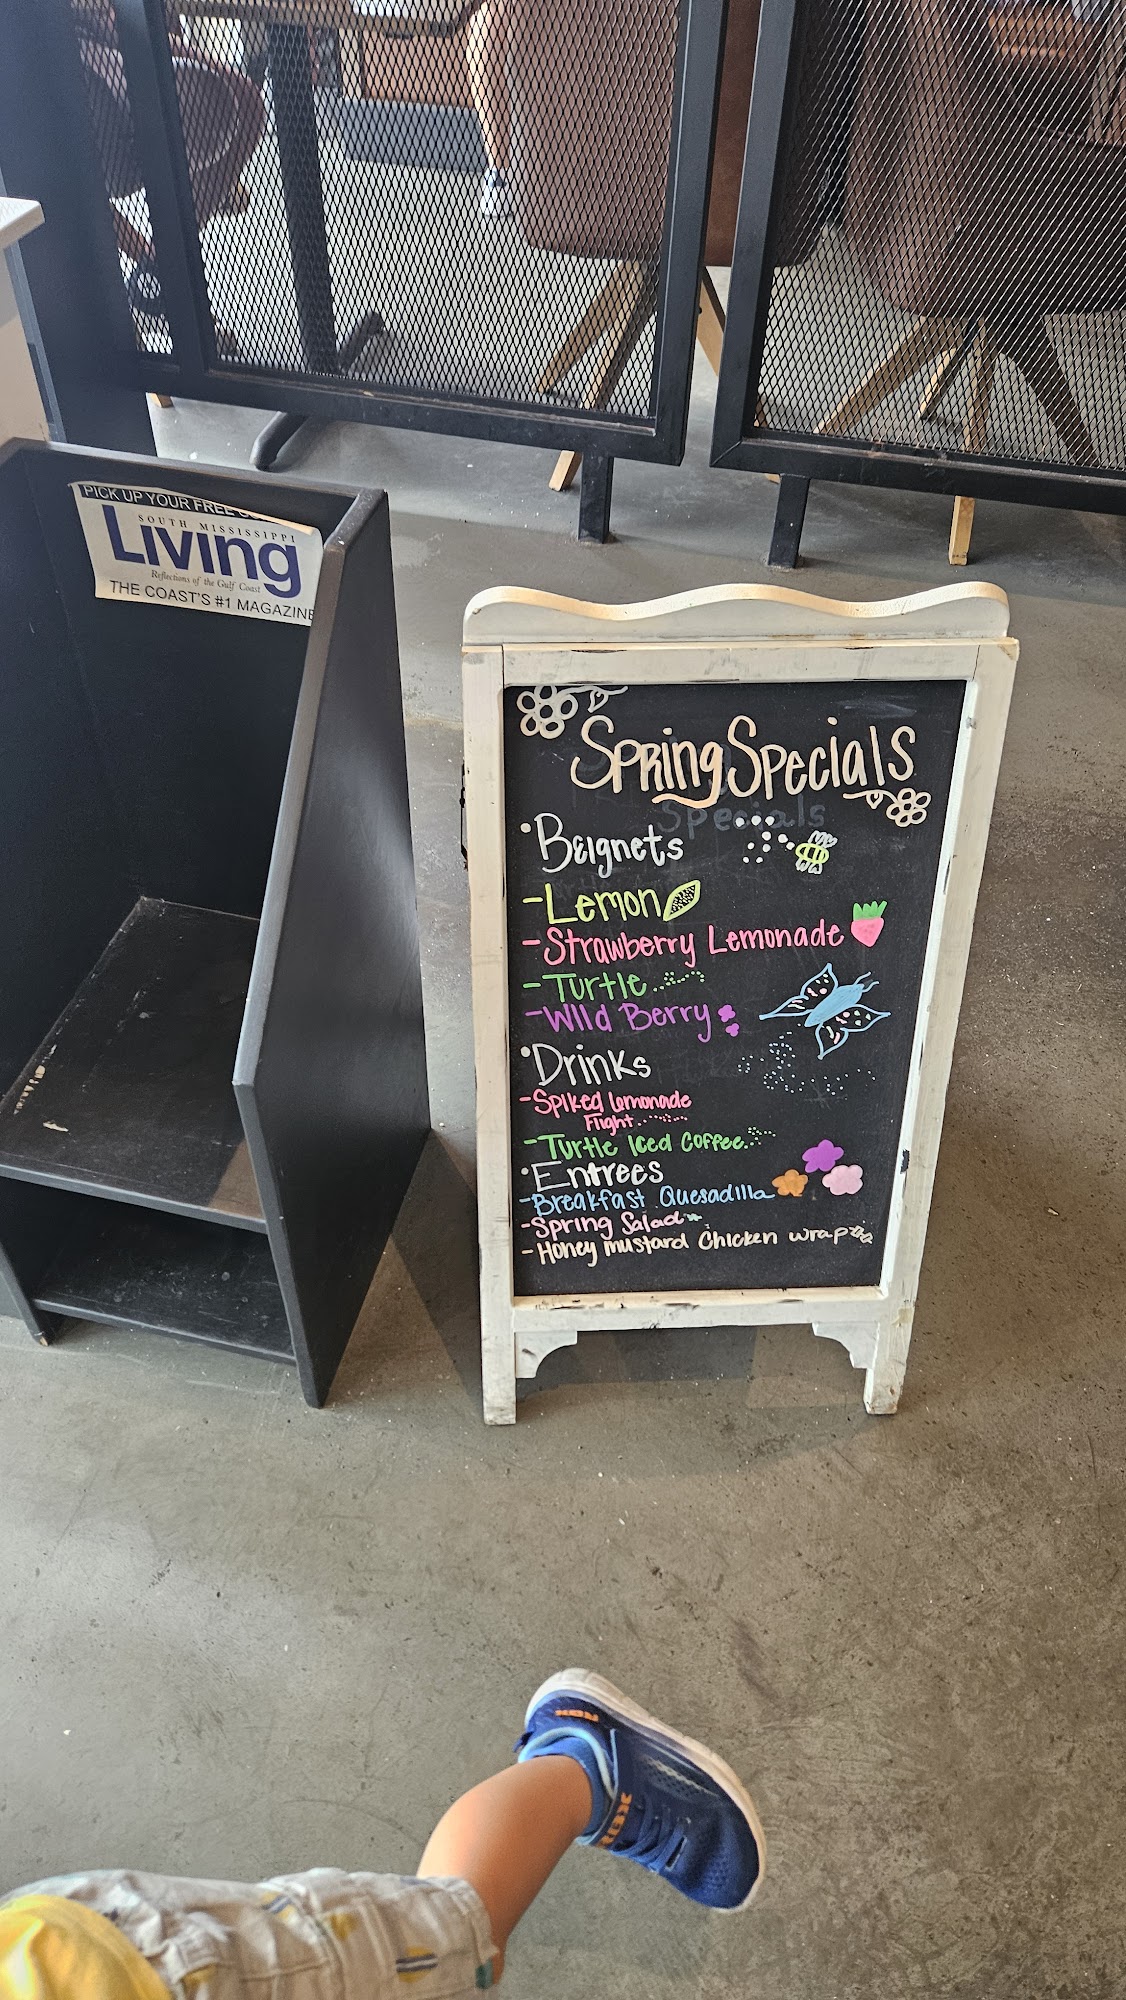 PICK UP YOUR FREE
SOUTH MISSISSIPPI
Living
Reflections of the Gulf Coast
THE COAST'S #1 MAGAZINE
Spring Specials
Specials
•Beignets
-Lemon
-Strawberry Lemonade
-Turtle
-Wild Berry
•Drinks
-Spiked lemonade
Flight
-Turtle Iced Coffee
•Entrees
-Breakfast Quesadilla
-Spring Salad
-Honey mustard Chicken wrap